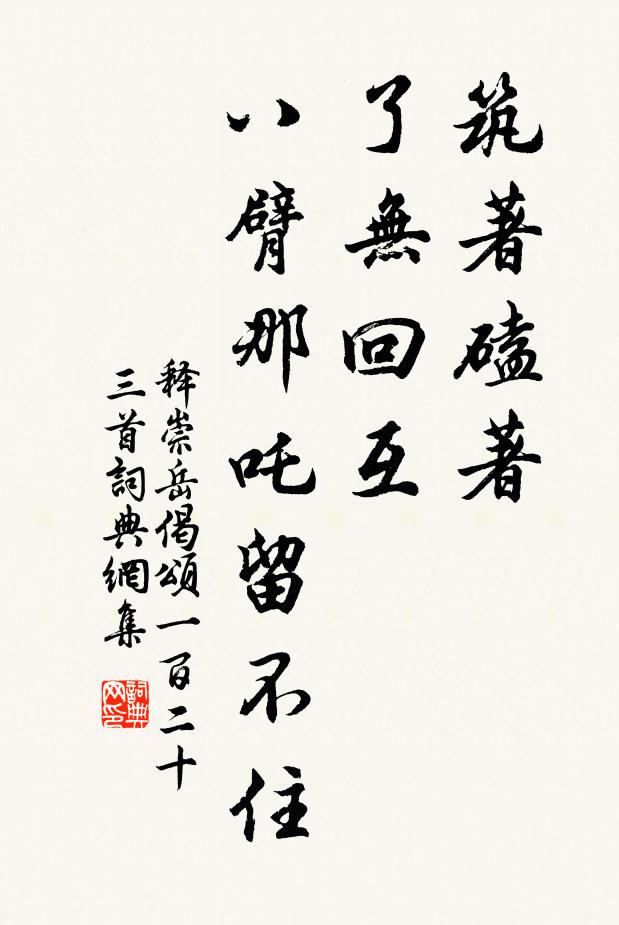 筑著磕著
了無回互
八臂那吒留不住
释崇岳偈頌一百二十
三首詞典網集
詞典
网印